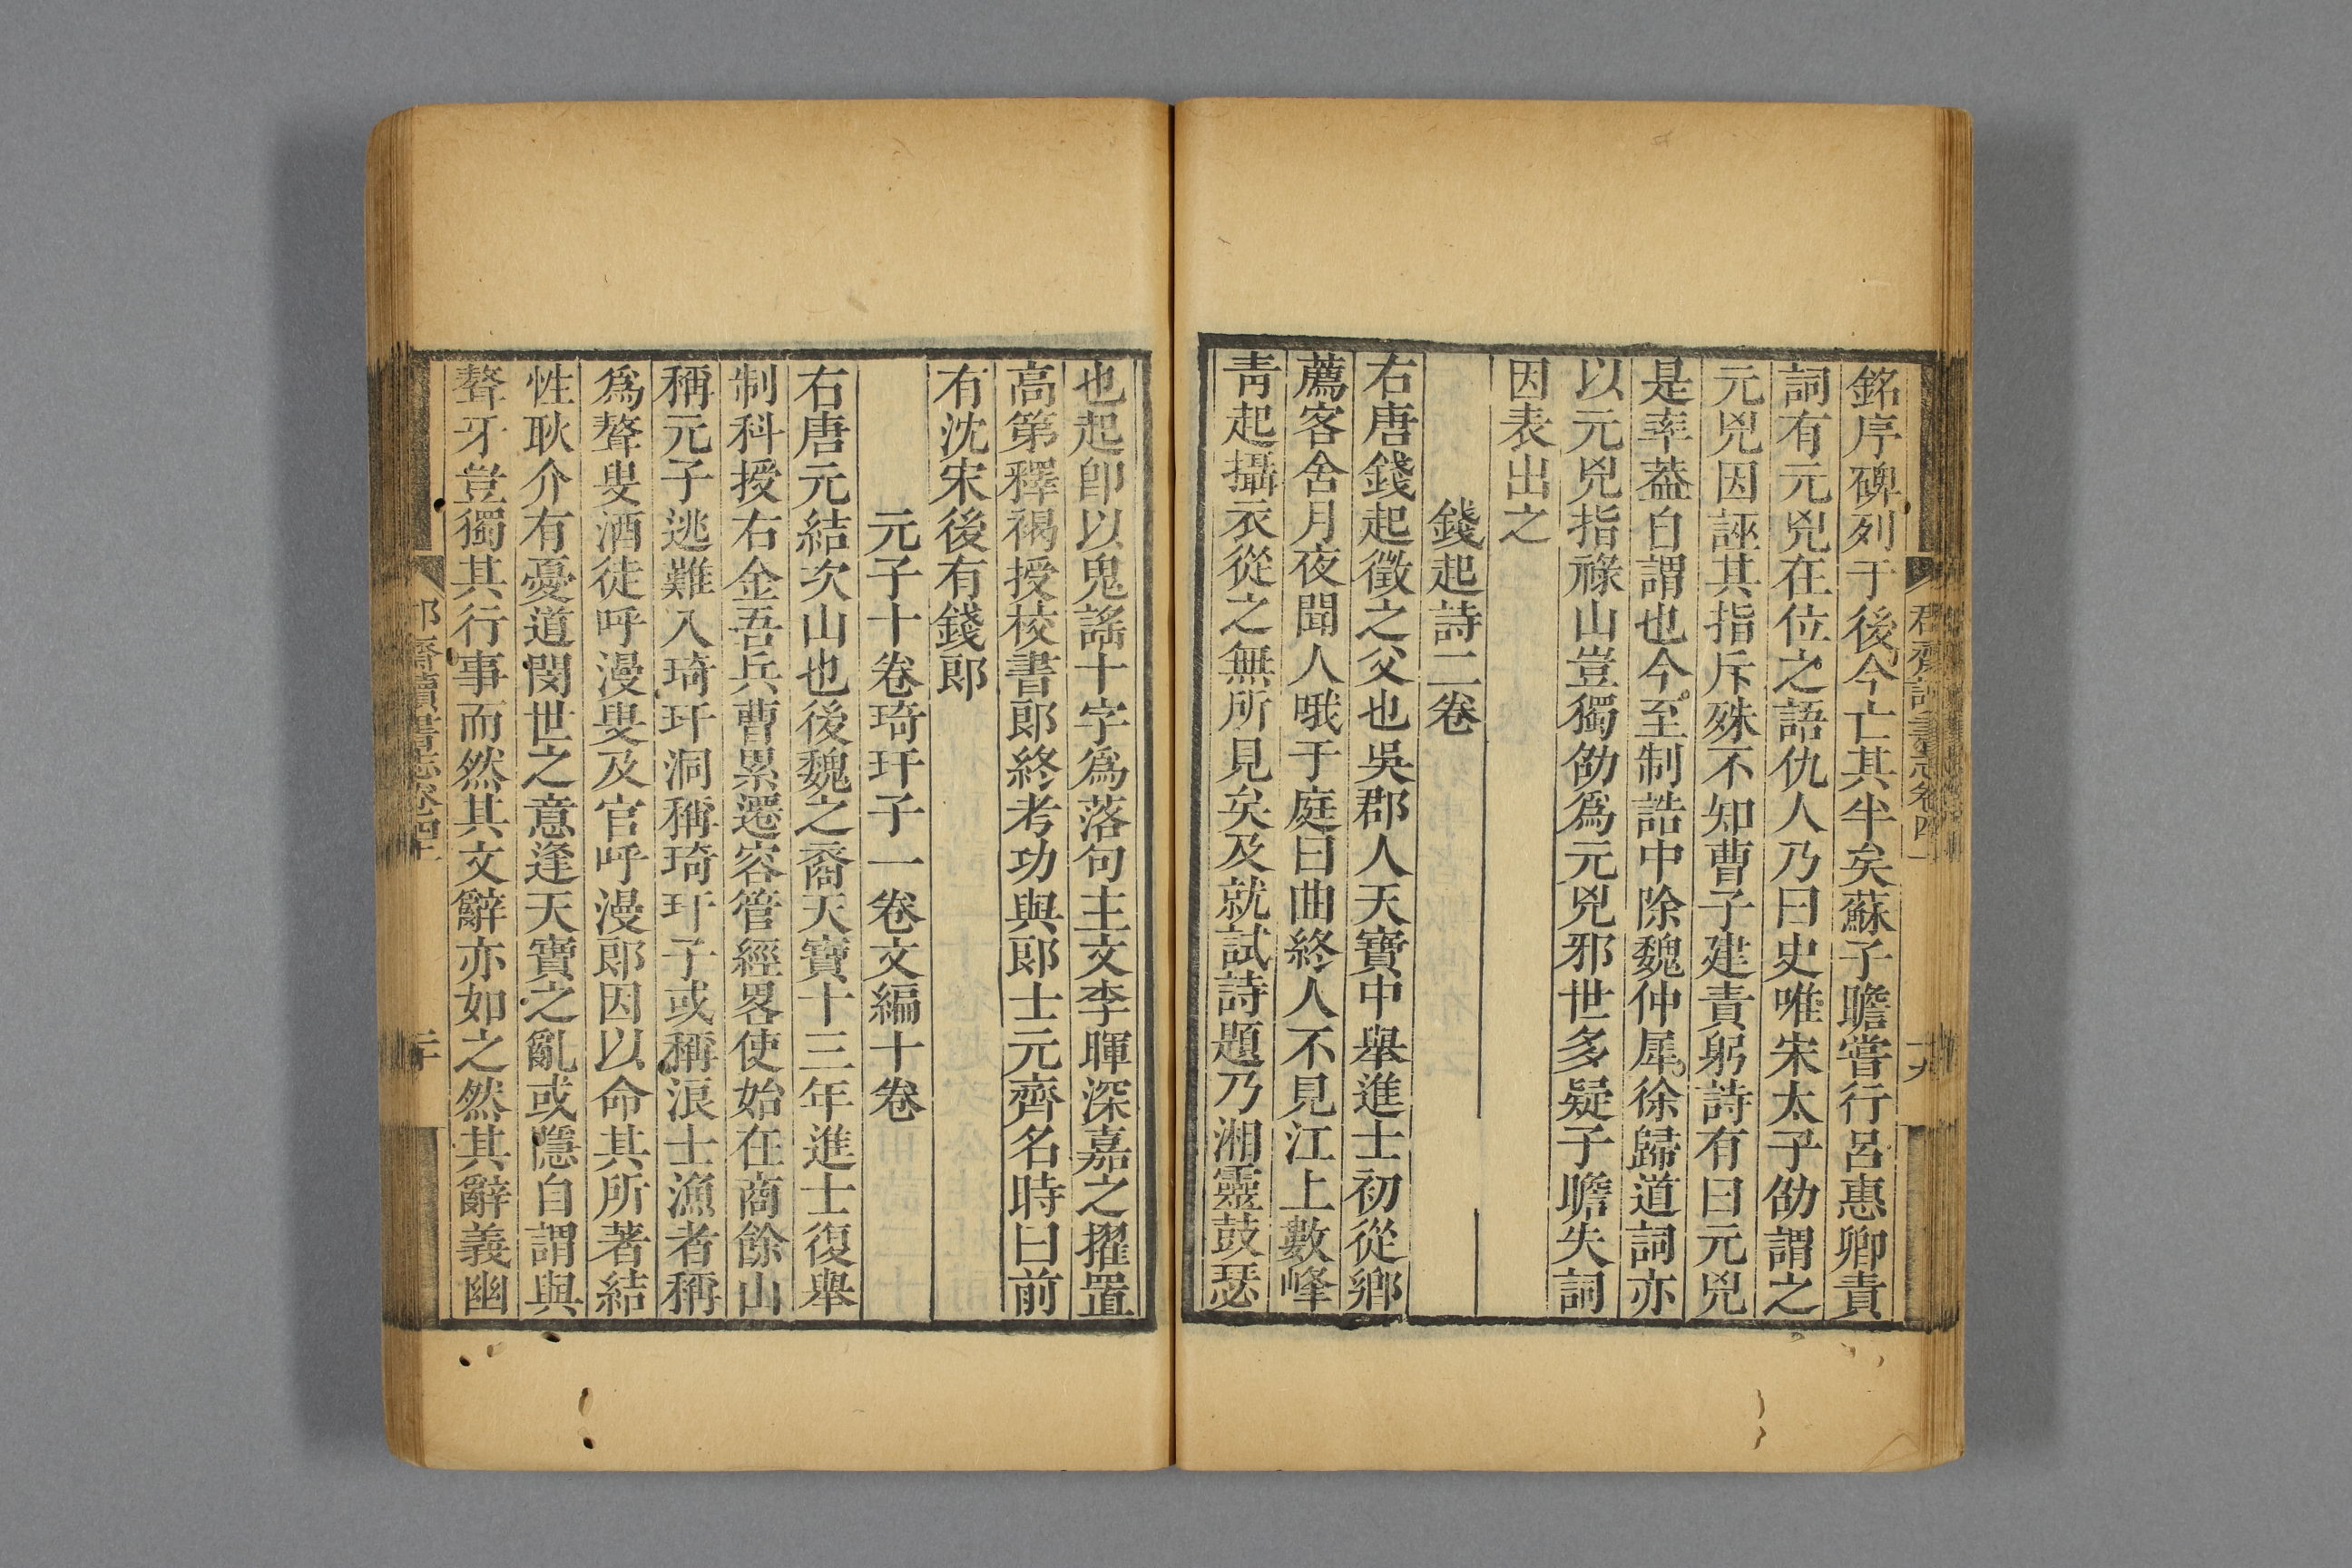 銘序碑列于後今亡其半矣蘇子瞻嘗行呂惠卿責
詞有元兇在位之語仇人乃曰史唯宋太子劭謂之
元兇因誣其指斥殊不知曹子建責躬詩有曰元兇
是率葢自謂也今至制誥中除魏仲犀徐歸道詞亦
以元兇指祿山豈獨劭爲元兇邪世多疑子瞻失詞
因表出之
錢起詩二卷
右唐錢起徵之父也吳郡人天寶中舉進士初從鄉
薦客舍月夜聞人哦于庭曰曲終人不見江上數峰
靑起攝衣從之無所見矣及就試詩題乃湘靈鼓瑟
也起卽以鬼謠十字爲落句主文李暉深嘉之擢置
高第釋褐授校書郎終考功與郎士元齊名時曰前
有沈宋後有錢郎
元子十卷琦玕子一卷文編十卷
右唐元結次山也後魏之裔天寶十三年進士復舉
制科授右金吾兵曹累遷容管經畧使始在商餘山
稱元子逃難入琦玕洞稱琦玕子或稱浪士漁者稱
爲聱叟酒徒呼漫叟及官呼漫郎因以命其所著結
性耿介有憂道閔世之意逢天寶之亂或隱自謂與
聱牙豈獨其行事而然其文辭亦如之然其辭義幽